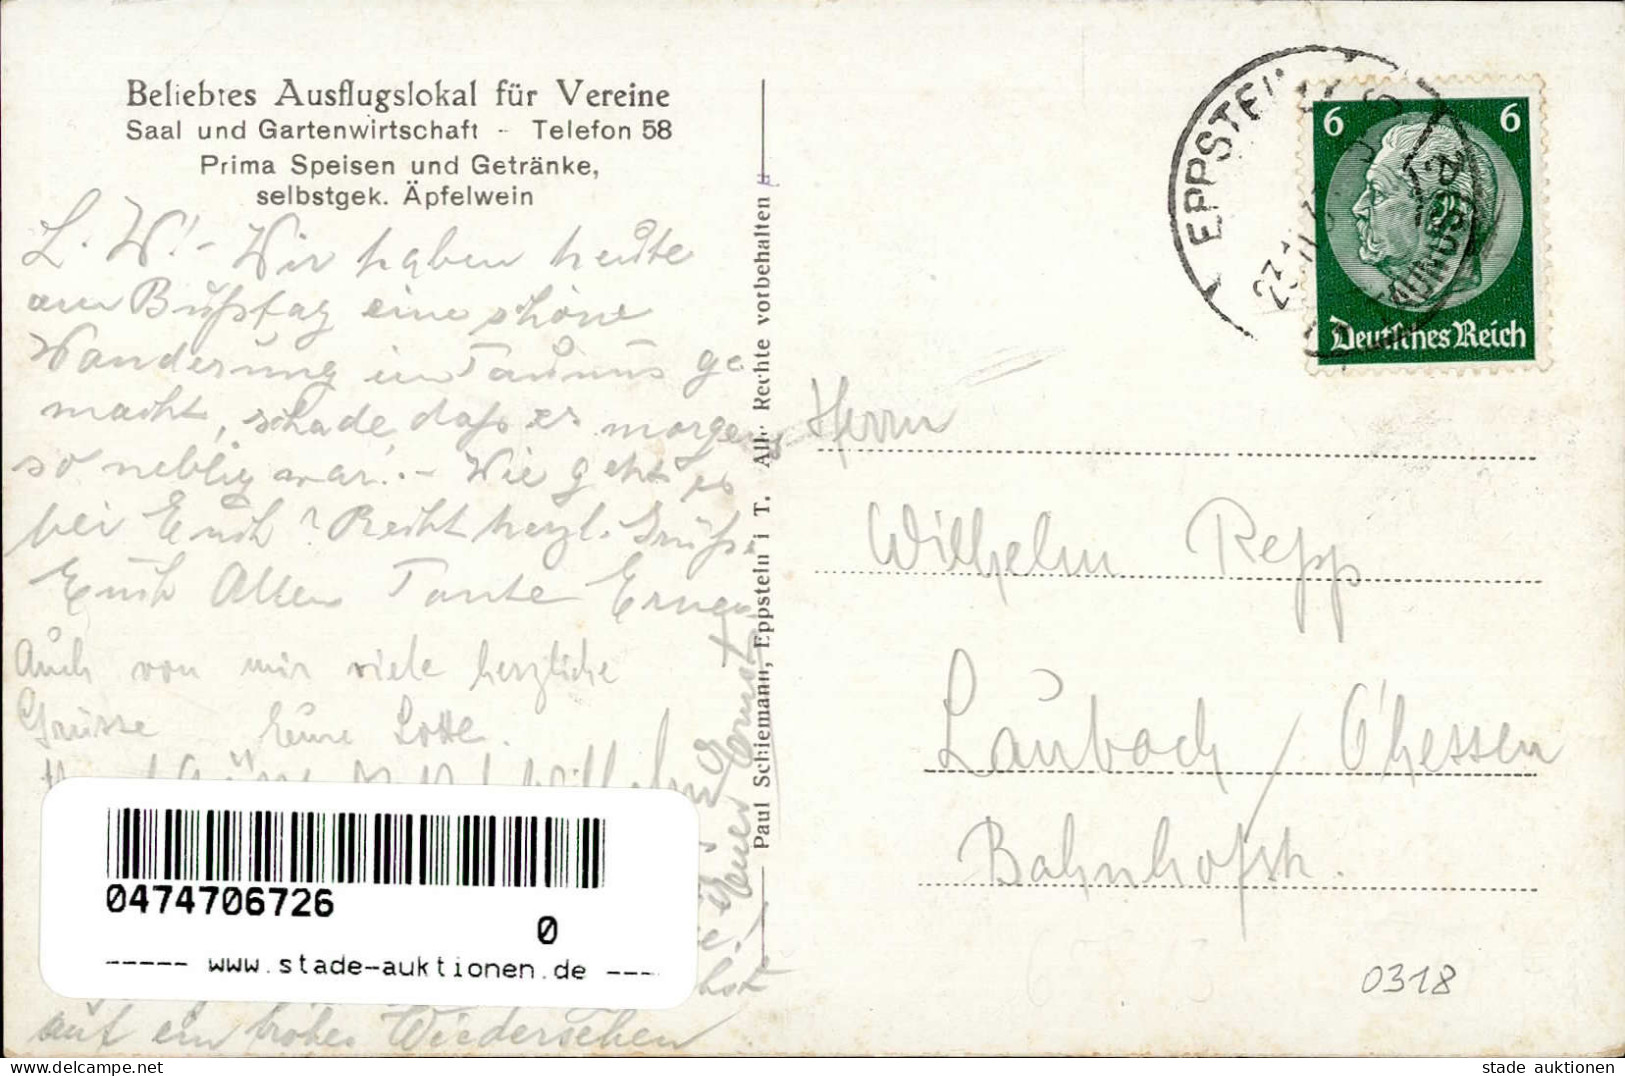 Beliebtes Ausflugslokal für Vereine
Saal und Gartenwirtschaft - Telefon 58
Prima Speisen und Getränke,
selbstgek. Äpfelwein
L. W! - Wir haben heute
am Bußtag eine schöne
Wanderung im Taunus ge
macht, schade daß es morgens
so neblig war. - Wie geht es
bei Euch? Recht herzl. Grüße
Euch Allen Tante Erna
Auch von mir viele herzliche
Grüsse Eure Lotte.
Wilhelm
auf ein frohes Wiedersehen
Euer Ernst
Paul Schiemann, Eppstein i T. Alle Rechte vorbehalten
EPPSTE
23.11.3
6 6
Deutsches Reich
Herrn
Wilhelm Repp
Laubach / O'hessen
Bahnhofstr.
0318
0474706726
0
----- www.stade-auktionen.de ----
www.delcampe.net
stade auktionen